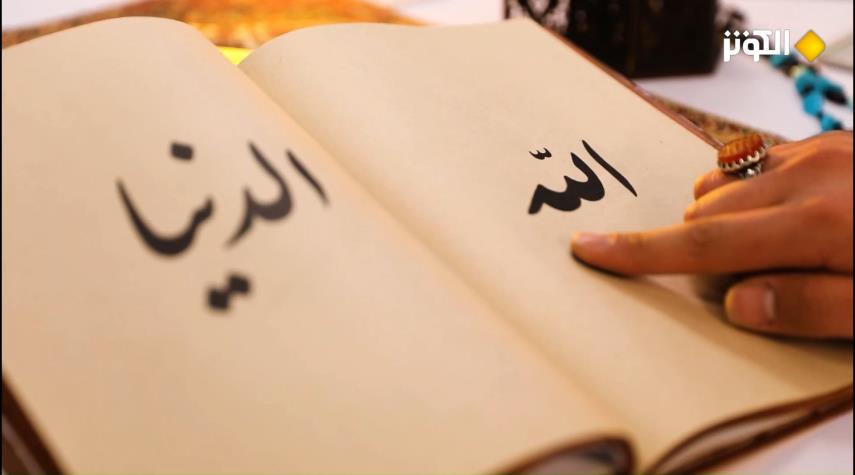 الكوثر
الله
الدنيا